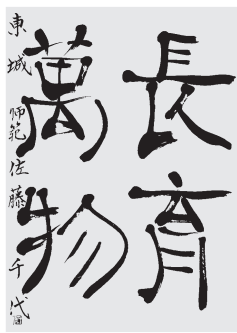 長育
萬物
東城 師範 佐藤千代